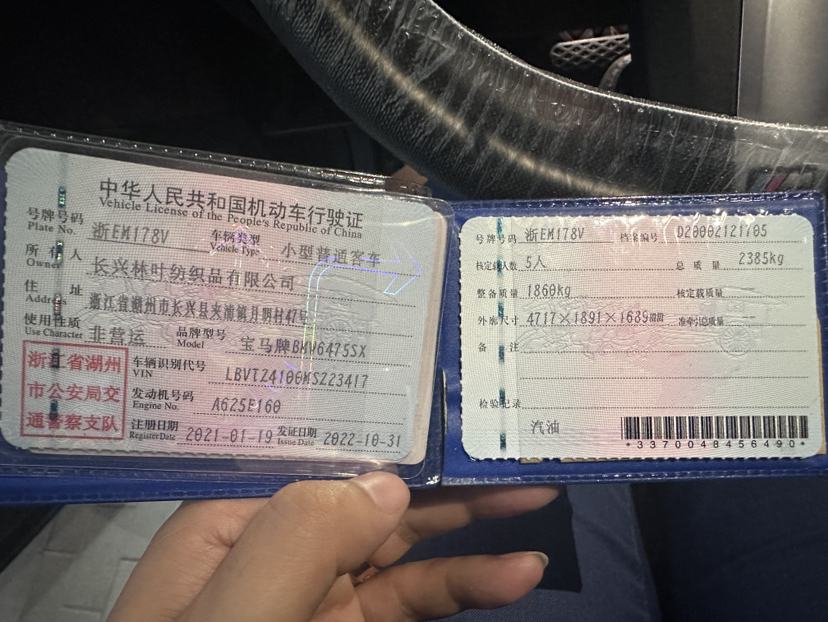 中华人民共和国机动车行驶证
Vehicle License of the People's Republic of China
号牌号码 浙EM178V 车辆类型 小型普通客车
Plate No. Vehicle Type
所有人 长兴林叶纺织品有限公司
Owner
住址 浙江省湖州市长兴县夹浦镇月明村47号
Address
使用性质 非营运 品牌型号 宝马牌BMW6475SX
Use Character Model
浙江省湖州
市公安局交
通警察支队
车辆识别代号
VIN
发动机号码 A625E160
Engine No.
注册日期 2021-01-19 发证日期 2022-10-31
Register Date Issue Date
号牌号码 浙EM178V 档案编号
核定载人数 5人 总质量 2385kg
整备质量 1860kg 核定载质量 --
外廓尺寸 4717×1891×1689mm 准牵引总质量 --
备注
检验记录
汽油
*3370048456490*